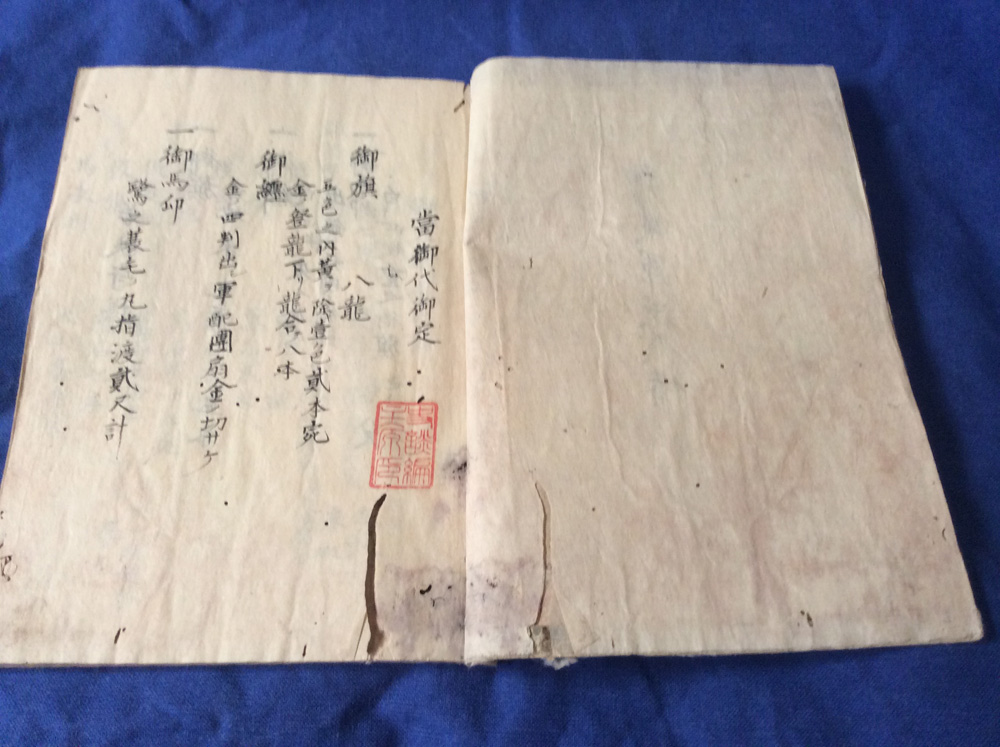 當御代御定
一御旗
八龍
五色之内黄ヲ除壹色貳本宛
金登龍下リ龍合八本
一御纒
金四判出シ軍配團扇金ノ切サケ
一御馬印
鷲之蓑毛丸指渡貳尺計
史談編